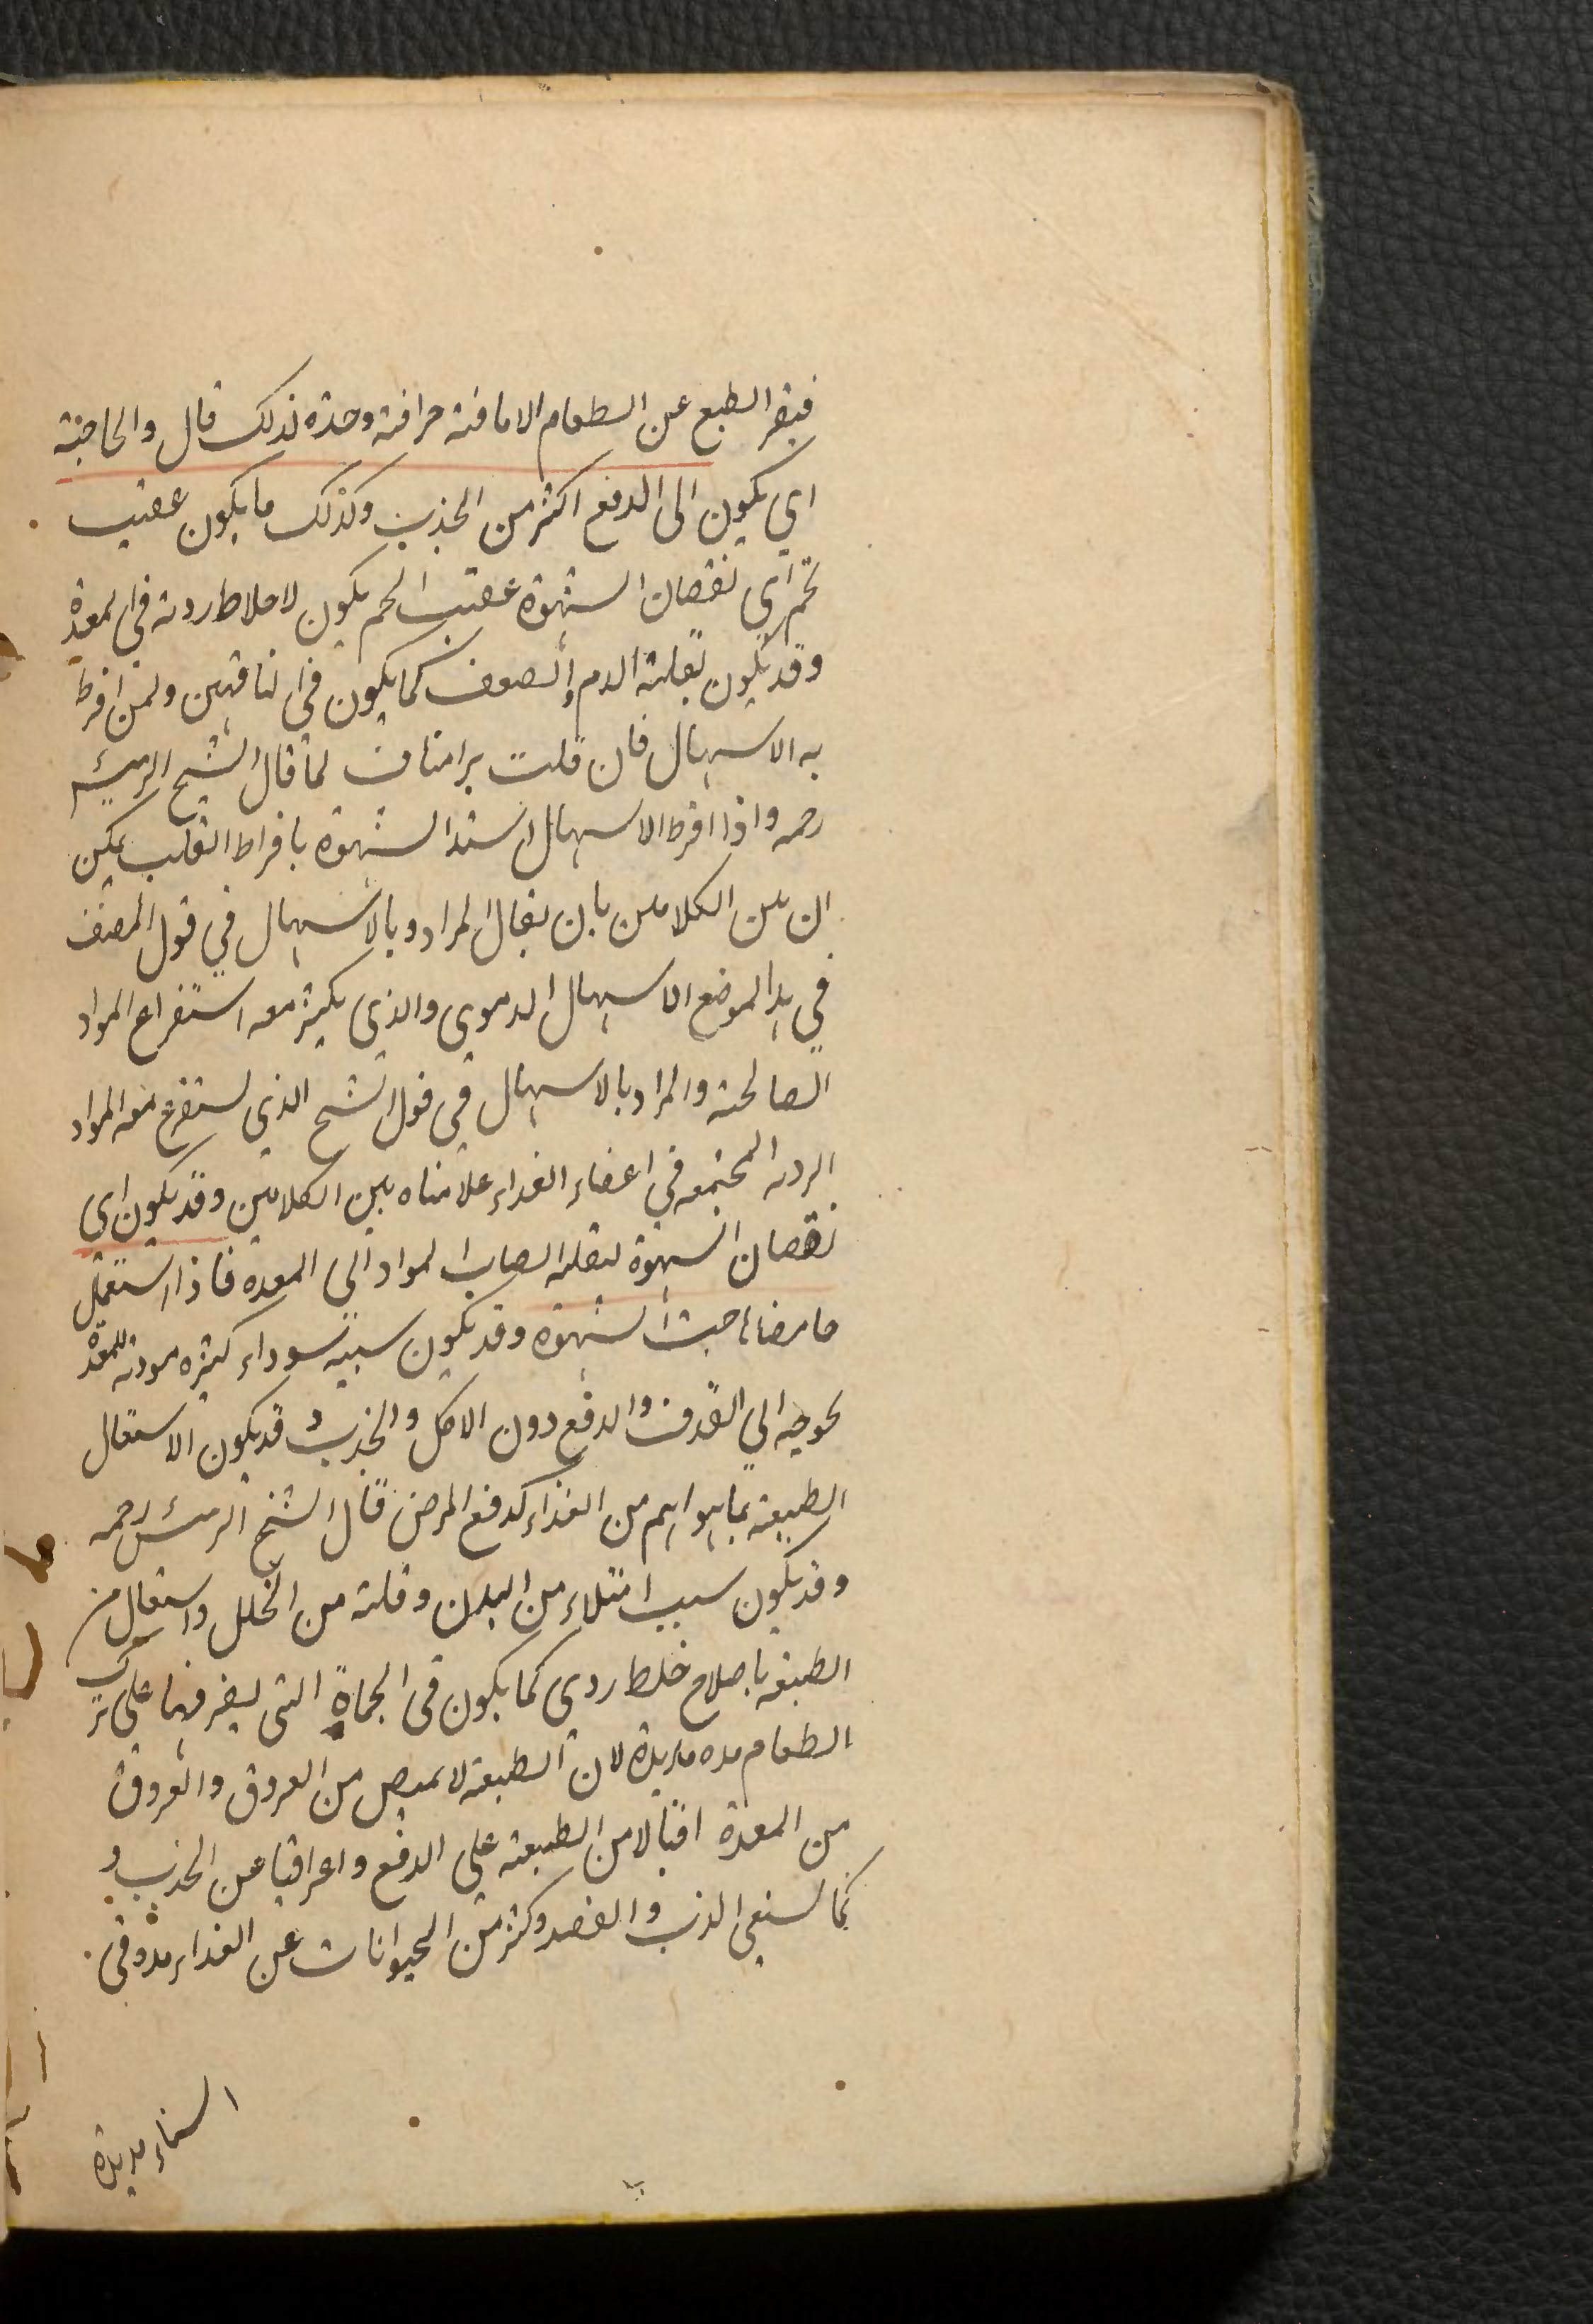 فينفر الطبع عن الطعام الا ما فيه حرافة وحدة لذلك قال والحاجة
اي يكون الى الدفع اكثر من الجذب وكذلك ما يكون عقيب
تخم اي نقصان الشهوة عقيب التخم يكون لاخلاط ردية في المعدة
وقد يكون لقلة الدم والضعف كما يكون في الناقهين ولمن افرط
به الاسهال فان قلت هذا مناف لما قال الشيخ الرئيس
رحمه واذا افرط الاسهال اشتد الشهوة بافراط القلب يمكن
ان بين الكلامين بان يقال المراد وبالاسهال في قول المصنف
في هذا الموضع الاسهال الدموي والذي يكثر معه استفراغ المواد
الصالحة والمراد بالاسهال في قول الشيخ الذي يستفرغ معه المواد
الردية المجتمعة في اعضاء الغذاء علا مناه بين الكلامين وقد يكون اى
نقصان الشهوة لقلة انصباب المواد الى المعدة فاذا استعمل
حامضا هاجت الشهوة وقد يكون سببه سوداء كثيرة موذية للمعدة
يحوجه الي القذف والدفع دون الاكل والجذب وقد يكون الاشتغال
الطبيعة بما هو اهم من الغذاء كدفع المرض قال الشيخ الرئيس رحمه
وقد يكون سبب امتلاء من البدن وقلة من التحلل واشتغال من
الطبيعة باصلاح خلط ردي كما يكون في الحماة التي يصبر فيها على ترك
الطعام مدة مديدة لان الطبيعة لا تمتص من العروق والعروق
من المعدة اقبالا من الطبيعة على الدفع واعراضا عن الجذب و
كما يستغني الدب والقنفد وكثير من الحيوانات عن الغذاء مدة في
الشتاء مديدة